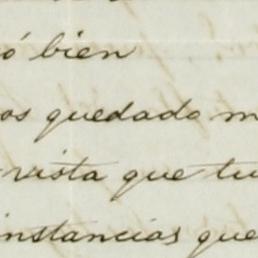 ó bien
os quedado m
rvista que tu
instancias que